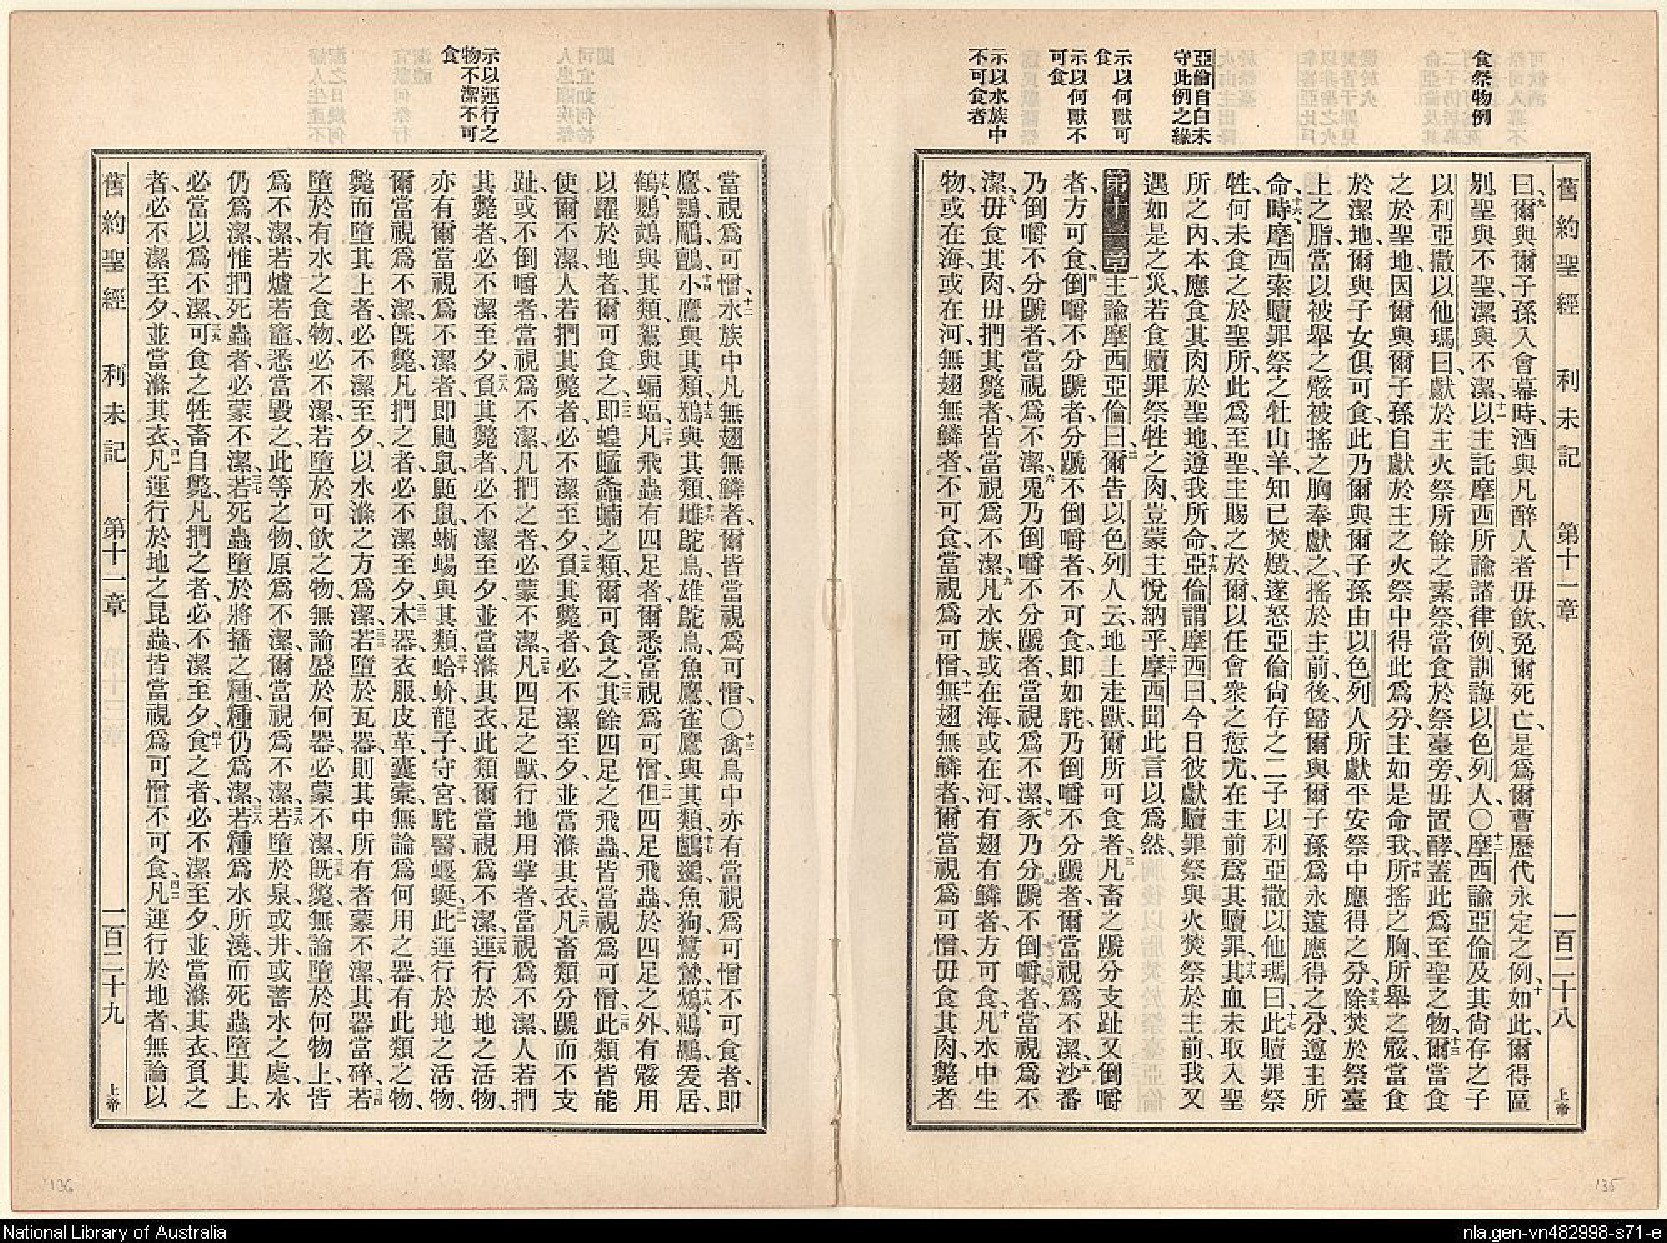 食祭物例
亞倫自白未
守此例之緣
示以何獸可
食
示以何獸不
可食
示以水族中
不可食者
舊約聖經 利未記 第十一章 一百二十八 上帝
曰、爾與爾子孫入會幕時、酒與凡醉人者毋飲、免爾死亡、是爲爾曹歷代永定之例、如此、爾得區
別、聖與不聖、潔與不潔、以主託摩西所諭諸律例、訓誨以色列人、〇摩西諭亞倫及其尙存之子
以利亞撒以他瑪曰、獻於主火祭所餘之素祭、當食於祭臺旁、毋置酵、蓋此爲至聖之物、爾當食
之於聖地、因爾與爾子孫自獻於主之火祭中得此爲分、主如是命我、所搖之胸、所舉之骽、當食
於潔地、爾與子女俱可食、此乃爾與爾子孫由以色列人所獻平安祭中應得之分、除焚於祭臺
上之脂、當以被舉之骽、被搖之胸奉獻之、搖於主前、後歸爾與爾子孫、爲永遠應得之分、遵主所
命、時摩西索贖罪祭之牡山羊、知已焚燬、遂怒亞倫尙存之二子以利亞撒以他瑪曰、此贖罪祭
牲、何未食之於聖所、此爲至聖、主賜之於爾、以任會衆之愆尤、在主前爲其贖罪、其血未取入聖
所之內、本應食其肉於聖地、遵我所命、亞倫謂摩西曰、今日彼獻贖罪祭與火焚祭於主前、我又
遇如是之災、若食贖罪祭牲之肉、豈蒙主悅納乎、摩西聞此言以爲然、
第十一章 主諭摩西亞倫曰、爾告以色列人云、地上走獸、爾所可食者、凡畜之蹏分支趾又倒嚼
者、方可食、倒嚼不分蹏者、分蹏不倒嚼者、不可食、卽如駝、乃倒嚼不分蹏者、爾當視爲不潔、沙番
乃倒嚼不分蹏者、當視爲不潔、兎乃倒嚼不分蹏者、當視爲不潔、豕乃分蹏不倒嚼者、當視爲不
潔、毋食其肉、毋捫其斃者、皆當視爲不潔、凡水族或在海或在河、有翅有鱗者、方可食、凡水中生
物、或在海、或在河、無翅無鱗者、不可食、當視爲可憎、無翅無鱗者、爾當視爲可憎、毋食其肉、斃者
示以運行之
物不潔不可
食
當視爲可憎、水族中凡無翅無鱗者、爾皆當視爲可憎、〇禽鳥中亦有當視爲可憎不可食者、卽
鷹、鶚、鵰、鸇、小鷹與其類、鴉與其類、雌鴕鳥、雄鴕鳥、魚鷹、雀鷹與其類、鸕鷀、魚狗、鷺、鵜鶘、爰居、
鶴、鸚鵡與其類、鴽與蝙蝠、凡飛蟲有四足者、爾悉當視爲可憎、但四足飛蟲、於四足之外、有骽用
以躍於地者、爾可食之、卽蝗蜢螽蝻之類、爾可食之、其餘四足之飛蟲、皆當視爲可憎、此類皆能
使爾不潔、人若捫其斃者、必不潔至夕、負其斃者、必不潔至夕、並當滌其衣、凡畜類分蹏而不支
趾、或不倒嚼者、當視爲不潔、凡捫之者、必蒙不潔、凡四足之獸、行地用掌者、當視爲不潔、人若捫
其斃者、必不潔至夕、負其斃者、必不潔至夕、並當滌其衣、此類爾當視爲不潔、運行於地之活物、
亦有爾當視爲不潔者、卽鼬鼠、鼫鼠、蜥蜴與其類、蛤蚧、龍子、守宮、駝醫、蝘蜓、此運行於地之活物、
爾當視爲不潔、旣斃、凡捫之者、必不潔至夕、木器、衣服、皮革、囊橐、無論爲何用之器、有此類之物、
斃而墮其上者、必不潔至夕、以水滌之方爲潔、若墮於瓦器、則其中所有者蒙不潔、其器當碎、若
墮於有水之食物、必不潔、若墮於可飲之物、無論盛於何器、必蒙不潔、旣斃無論墮於何物上、皆
爲不潔、若爐若竈、悉當毀之、此等之物、原爲不潔、爾當視爲不潔、若墮於泉或井、或蓄水之處、水
仍爲潔、惟捫死蟲者、必蒙不潔、若死蟲墮於將播之種、種仍爲潔、若種爲水所澆、而死蟲墮其上、
必當以爲不潔、可食之牲畜自斃、凡捫之者、必不潔至夕、食之者、必不潔至夕、並當滌其衣、負之
者、必不潔至夕、並當滌其衣、凡運行於地之昆蟲、皆當視爲可憎不可食、凡運行於地者、無論以
舊約聖經 利未記 第十一章 一百二十九 上帝
136
135
National Library of Australia
nla.gen-vn482998-s71-e